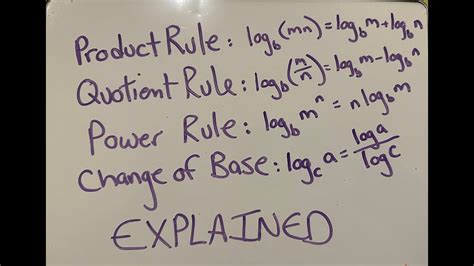 Product Rule: log_b(mn) = log_b m + log_b n
Quotient Rule: log_b(m/n) = log_b m - log_b n
Power Rule: log_b m^n = n log_b m
Change of Base: log_c a = log a / log c
EXPLAINED